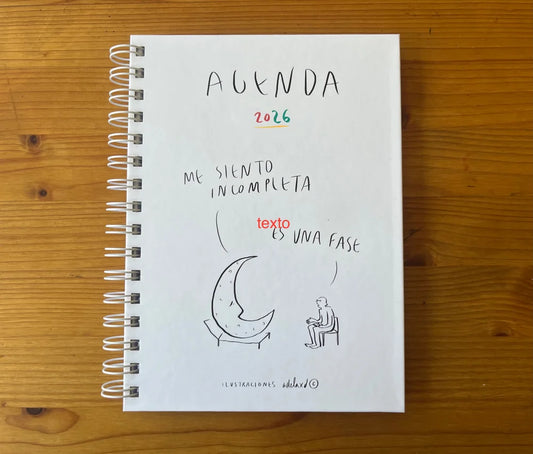 AGENDA
2026
ME SIENTO
INCOMPLETA
texto
ES UNA FASE
ILUSTRACIONES adelaxd ©